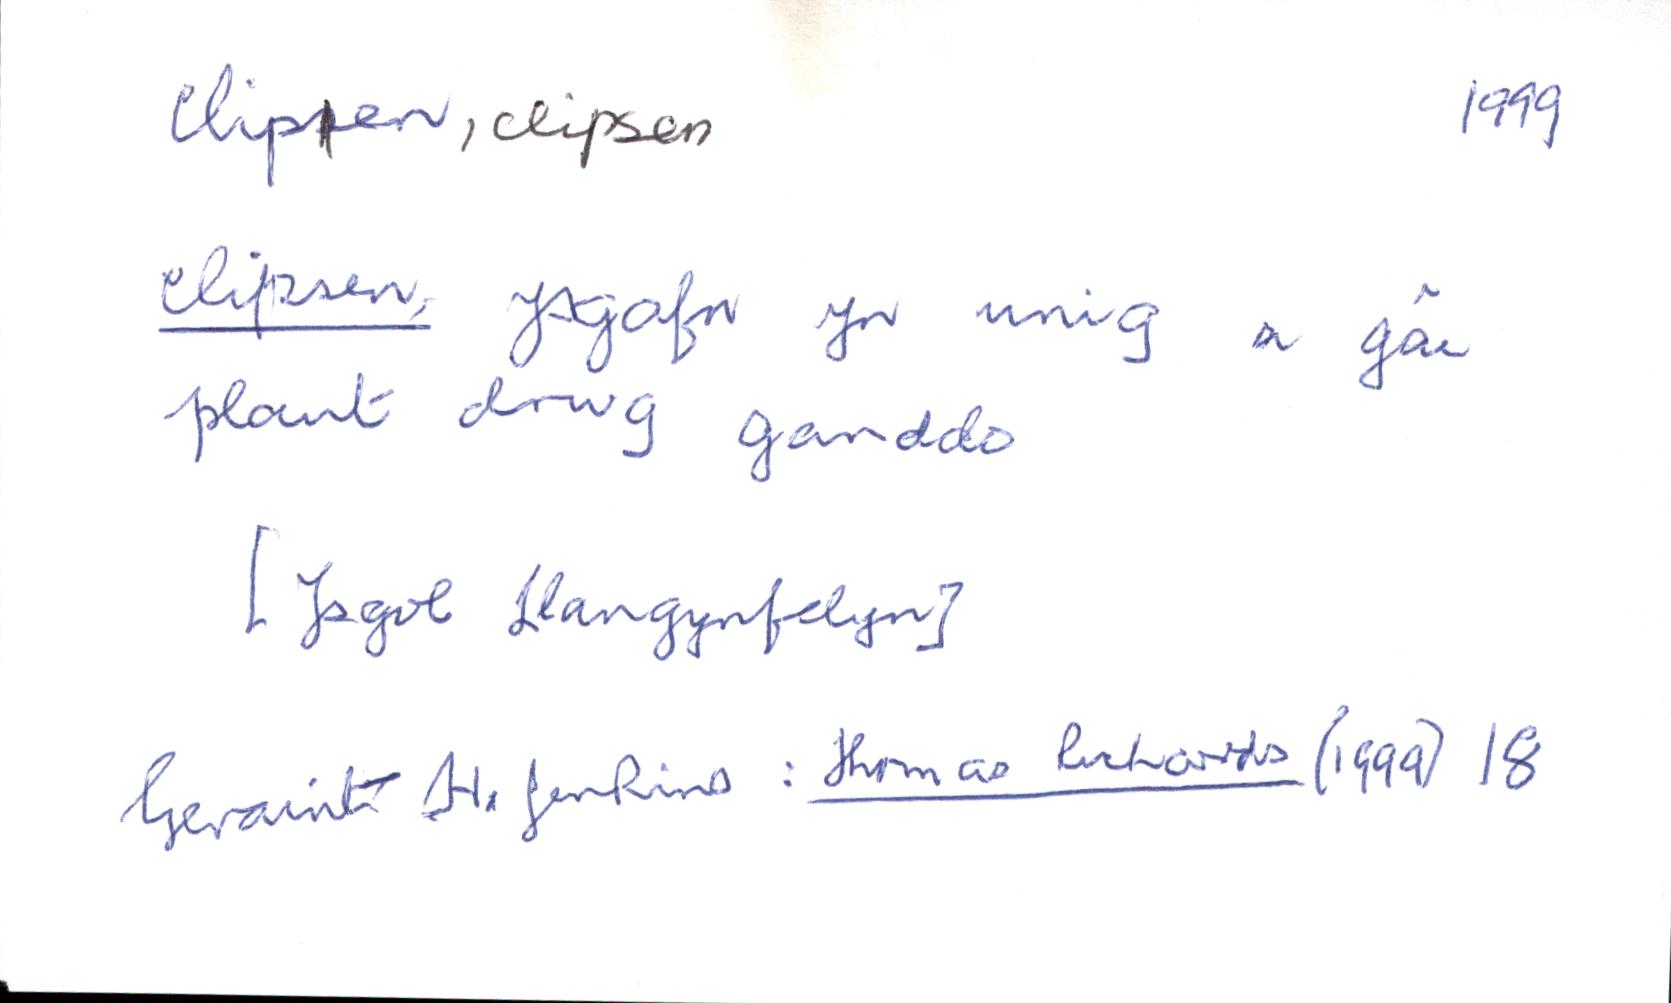 clipsen, clipsen 1999
clipsen, ysgafn yn unig a gâi
plant drwg ganddo
[Ysgol Llangynfelyn]
Geraint H. Jenkins : Thomas Richards (1999) 18